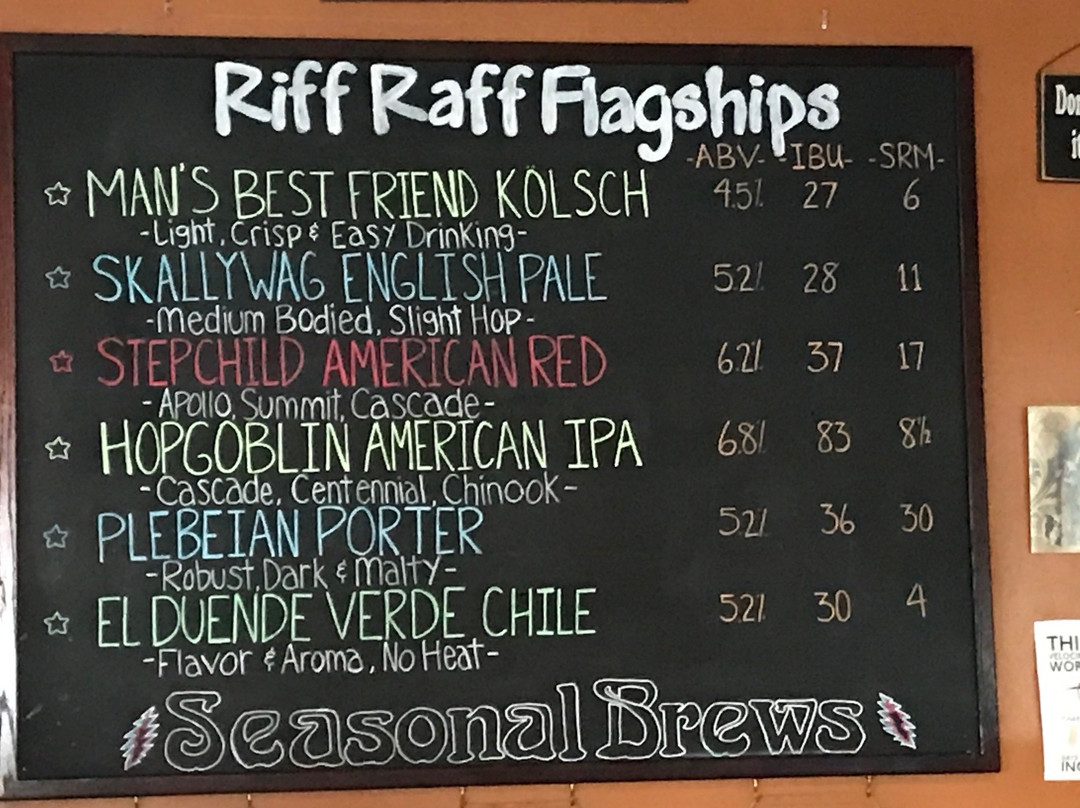 Riff Raff Flagships
-ABV- -IBU- -SRM-
☆ MAN'S BEST FRIEND KÖLSCH 4.5% 27 6
-Light, Crisp & Easy Drinking-
☆ SKALLYWAG ENGLISH PALE 5.2% 28 11
-Medium Bodied, Slight Hop-
☆ STEPCHILD AMERICAN RED 6.2% 37 17
-Apollo, Summit, Cascade-
☆ HOPGOBLIN AMERICAN IPA 6.8% 83 8½
-Cascade, Centennial, Chinook-
☆ PLEBEIAN PORTER 5.2% 36 30
-Robust, Dark & Malty-
☆ EL DUENDE VERDE CHILE 5.2% 30 4
-Flavor & Aroma, No Heat-
Seasonal Brews